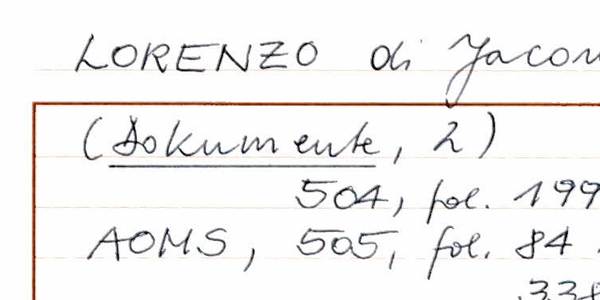 LORENZO di Jacom
(Dokumente, 2)
504, fol. 199
AOMS, 505, fol. 84
338